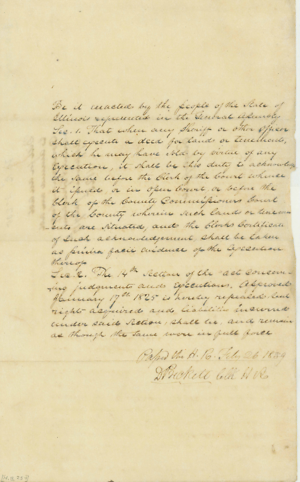 Be it enacted by the people of the State of
Illinois represented in the General Assembly
Sec. 1. That when any Sheriff or other officer
shall execute a deed for land or tenement,
which he may have sold by virtue of any
Execution, it shall be his duty to acknowledge
the same before the Clerk of the Court whence
it issued or in open Court or before the
Clerk of the County Commissioners Court
of the County wherein such land or tenem-
ents are situated, and the Clerks Certificate
of such acknowledgement shall be taken
as prima facie evidence of the Execution
thereof
Sec. 2. The 14th Section of the "act concer-
ning judgments and executions, Approved
January 17th 1825" is hereby repealed but
right acquired and liabilities incurred
under said Section shall be and remain
as though the same were in full force
Passed the H. R. Feby 1829
Clk H R